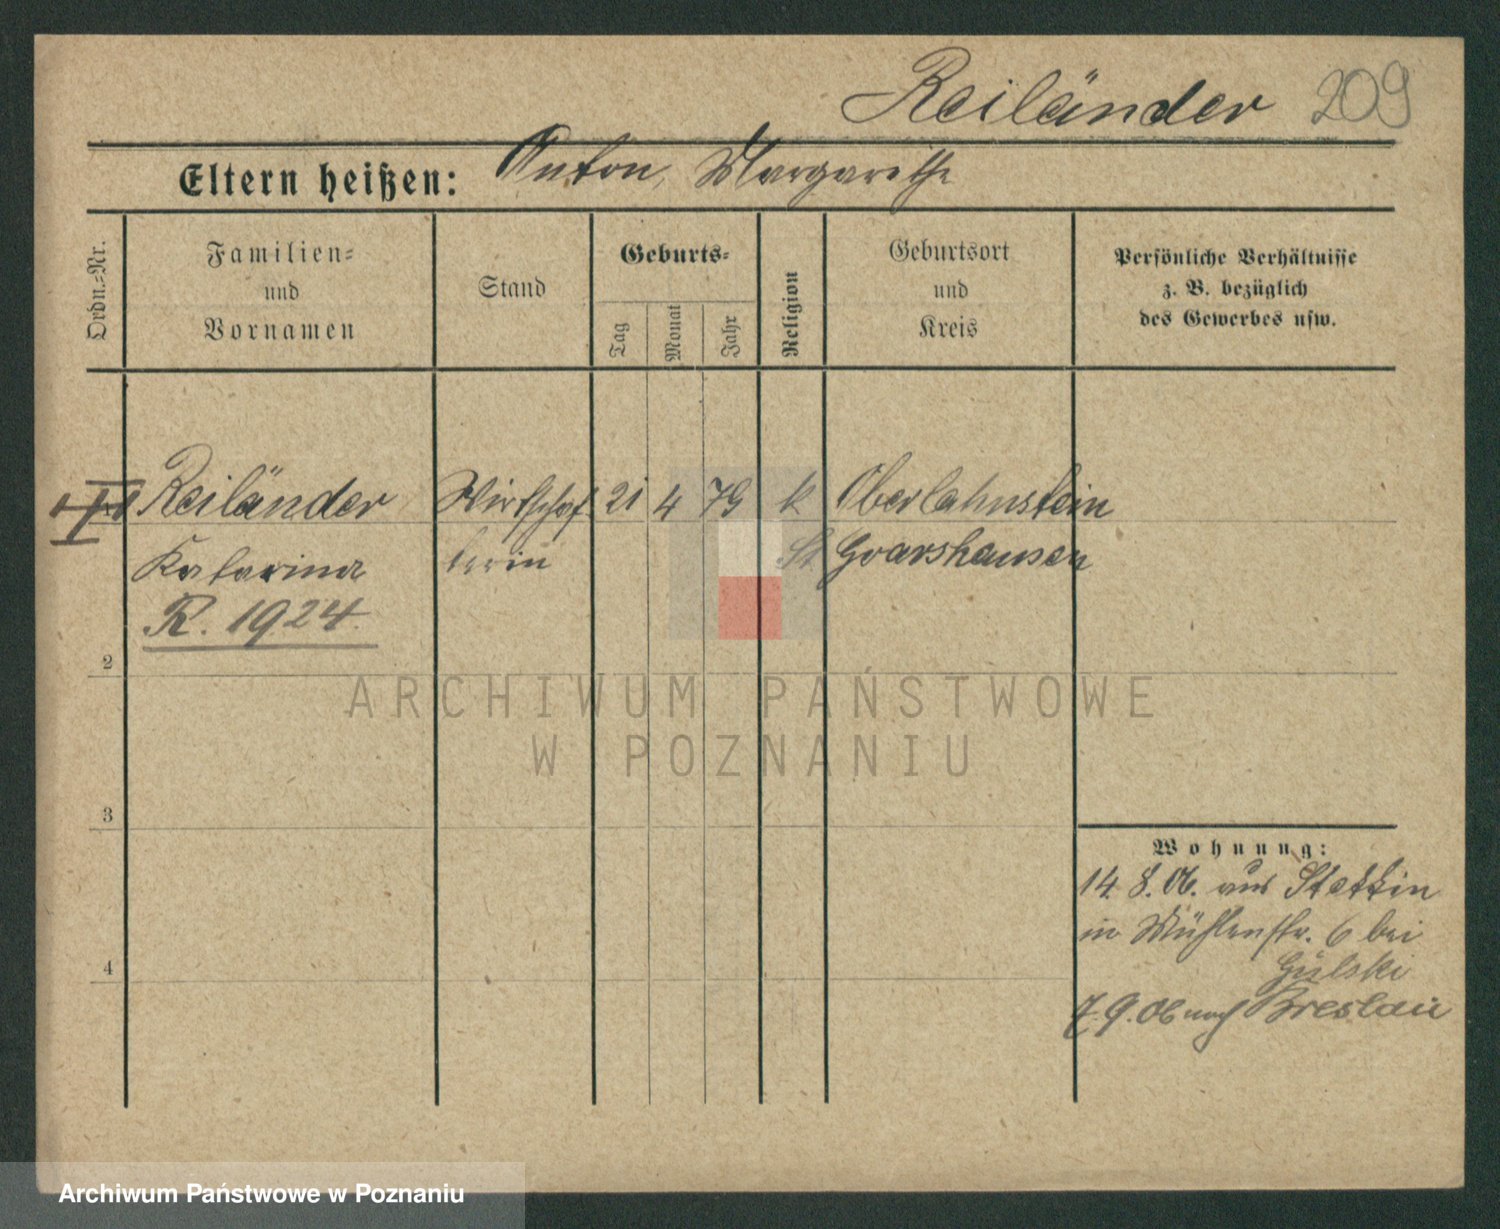 Reiländer 209
Eltern heißen: Anton, Margarethe
Ordn.=Nr.
Familien=
und
Vornamen
Stand
Geburts=
Tag
Monat
Jahr
Religion
Geburtsort
und
Kreis
Persönliche Verhältnisse
z. B. bezüglich
des Gewerbes usw.
Reiländer Wirtschaf 21 4 79 k Oberlahnstein
Katarina terin St Goarshausen
R. 1924.
2
3
4
Wohnung:
14. 8. 06. aus Stettin
in Mühlenstr. 6 bei
Gülski
7. 9. 06 nach Breslau
ARCHIWUM PAŃSTWOWE
W POZNANIU
Archiwum Państwowe w Poznaniu